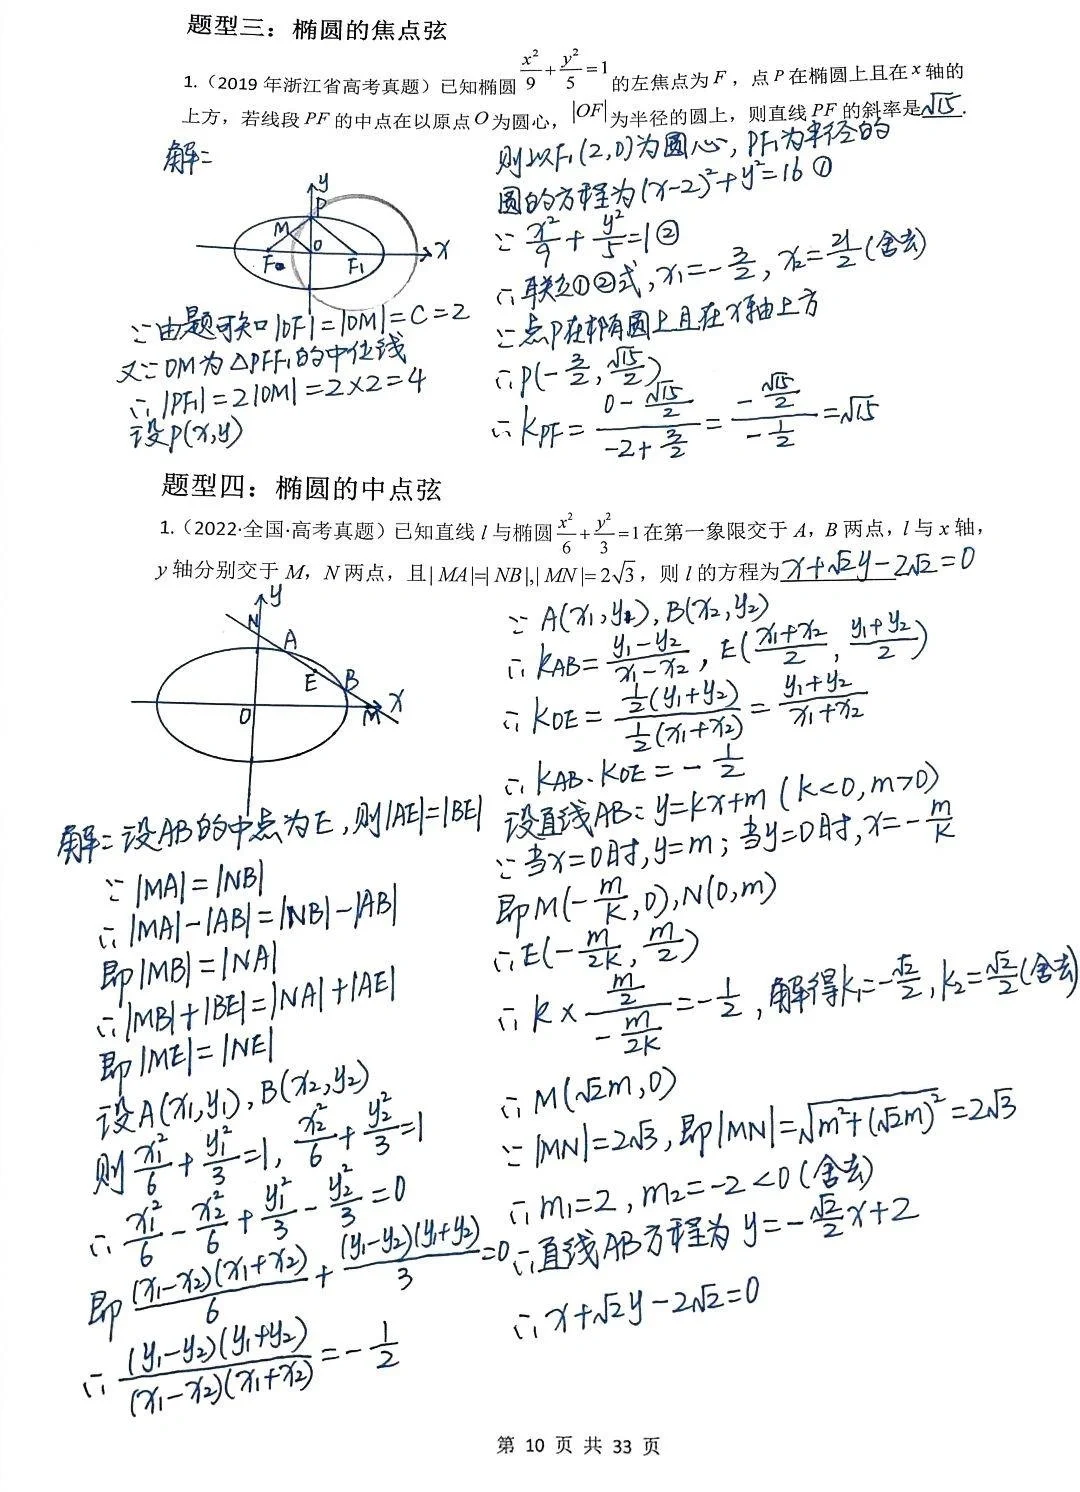 题型三：椭圆的焦点弦
1.（2019年浙江省高考真题）已知椭圆 x²/9 + y²/5 = 1 的左焦点为 F，点 P 在椭圆上且在 x 轴的
上方，若线段 PF 的中点在以原点 O 为圆心，|OF| 为半径的圆上，则直线 PF 的斜率是 √15 .
解：
y
P
M
O
x
F
F₁
∵由题可知|OF|=|OM|=C=2
又∵OM为△PFF₁的中位线
∴|PF₁|=2|OM|=2×2=4
设P(x,y)
则以F₁(2,0)为圆心，PF₁为半径的
圆的方程为(x-2)²+y²=16 ①
∵ x²/9 + y²/5 = 1 ②
∴联立①②式，x₁=-3/2，x₂=21/2(舍去)
∵点P在椭圆上且在x轴上方
∴P(-3/2, √15/2)
∴K_PF = (0-√15/2)/(-2+3/2) = (-√15/2)/(-1/2) = √15
题型四：椭圆的中点弦
1.（2022·全国·高考真题）已知直线 l 与椭圆 x²/6 + y²/3 = 1 在第一象限交于 A，B 两点，l 与 x 轴，
y 轴分别交于 M，N 两点，且|MA|=|NB|,|MN|=2√3，则 l 的方程为 x+√2y-2√2=0
y
N
A
E
B
O
M
x
解：设AB的中点为E，则|AE|=|BE|
∵|MA|=|NB|
∴|MA|-|AB|=|NB|-|AB|
即|MB|=|NA|
∴|MB|+|BE|=|NA|+|AE|
即|ME|=|NE|
设A(x₁,y₁)，B(x₂,y₂)
则 x₁²/6 + y₁²/3 = 1，x₂²/6 + y₂²/3 = 1
∴ x₁²/6 - x₂²/6 + y₁²/3 - y₂²/3 = 0
即 (x₁-x₂)(x₁+x₂)/6 + (y₁-y₂)(y₁+y₂)/3 = 0
∴ (y₁-y₂)(y₁+y₂)/(x₁-x₂)(x₁+x₂) = -1/2
∵A(x₁,y₁)，B(x₂,y₂)
∴K_AB = (y₁-y₂)/(x₁-x₂)，E((x₁+x₂)/2, (y₁+y₂)/2)
∴K_OE = ½(y₁+y₂)/½(x₁+x₂) = (y₁+y₂)/(x₁+x₂)
∴K_AB·K_OE = -1/2
设直线AB：y=kx+m (k<0,m>0)
∵当x=0时,y=m；当y=0时,x=-m/k
即M(-m/k,0),N(0,m)
∴E(-m/2k, m/2)
∴k×(m/2)/(-m/2k) = -1/2，解得k₁=-√2/2，k₂=√2/2(舍去)
∴M(√2m,0)
∵|MN|=2√3，即|MN|=√(m²+(√2m)²)=2√3
∴m₁=2，m₂=-2<0(舍去)
∴直线AB方程为 y=-√2/2x+2
∴x+√2y-2√2=0
第 10 页 共 33 页